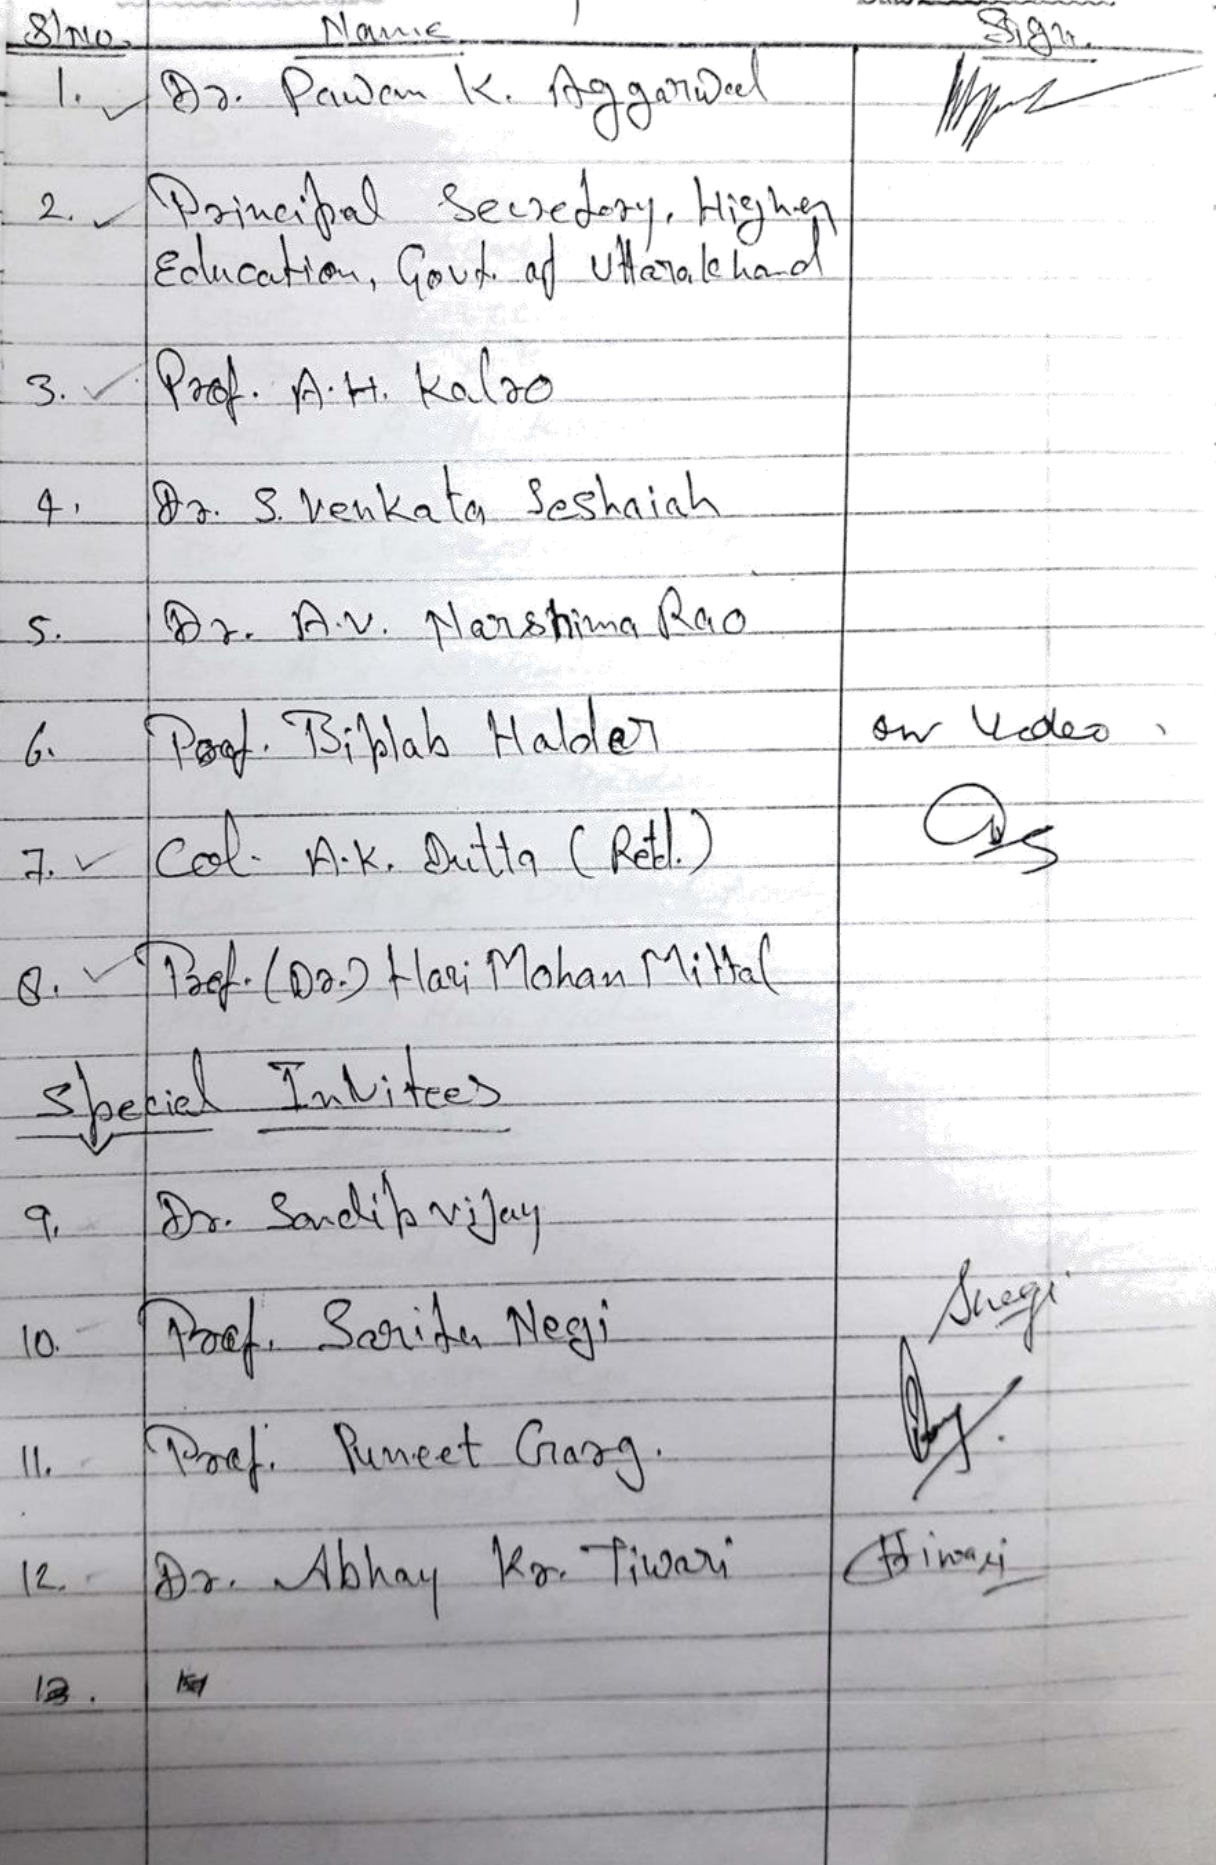 Sl No. Name Sign.
1. Dr. Pawan K. Aggarwal
2. Principal Secretary, Higher
Education, Govt. of Uttarakhand
3. Prof. A.H. Kalro
4. Dr. S. Venkata Seshaiah
5. Dr. A.V. Narshima Rao
6. Prof. Biplab Halder on Video
7. Col. A.K. Dutta (Retd.)
8. Prof. (Dr.) Hari Mohan Mittal
Special Invitees
9. Dr. Sandip Vijay
10. Prof. Sarita Negi Snegi
11. Prof. Puneet Garg.
12. Dr. Abhay Kr. Tiwari Atiwari
13.